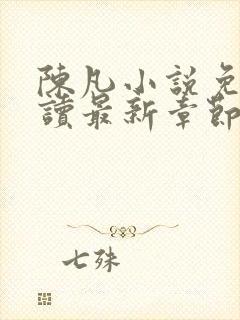 陳凡小說免
讀最新章節
七殊